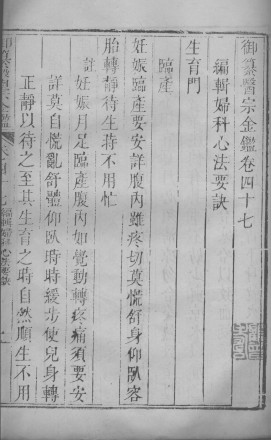 御纂醫宗金鑑卷四十七
編輯婦科心法要訣
生育門
臨產
妊娠臨產要安詳腹內雖疼切莫慌舒身仰臥容
胎轉靜待生時不用忙
註 妊娠月足臨產腹內如覺動轉疼痛須要安
詳莫自慌亂舒體仰臥時時緩步使兒身轉
正靜以待之至其生育之時自然順生不用